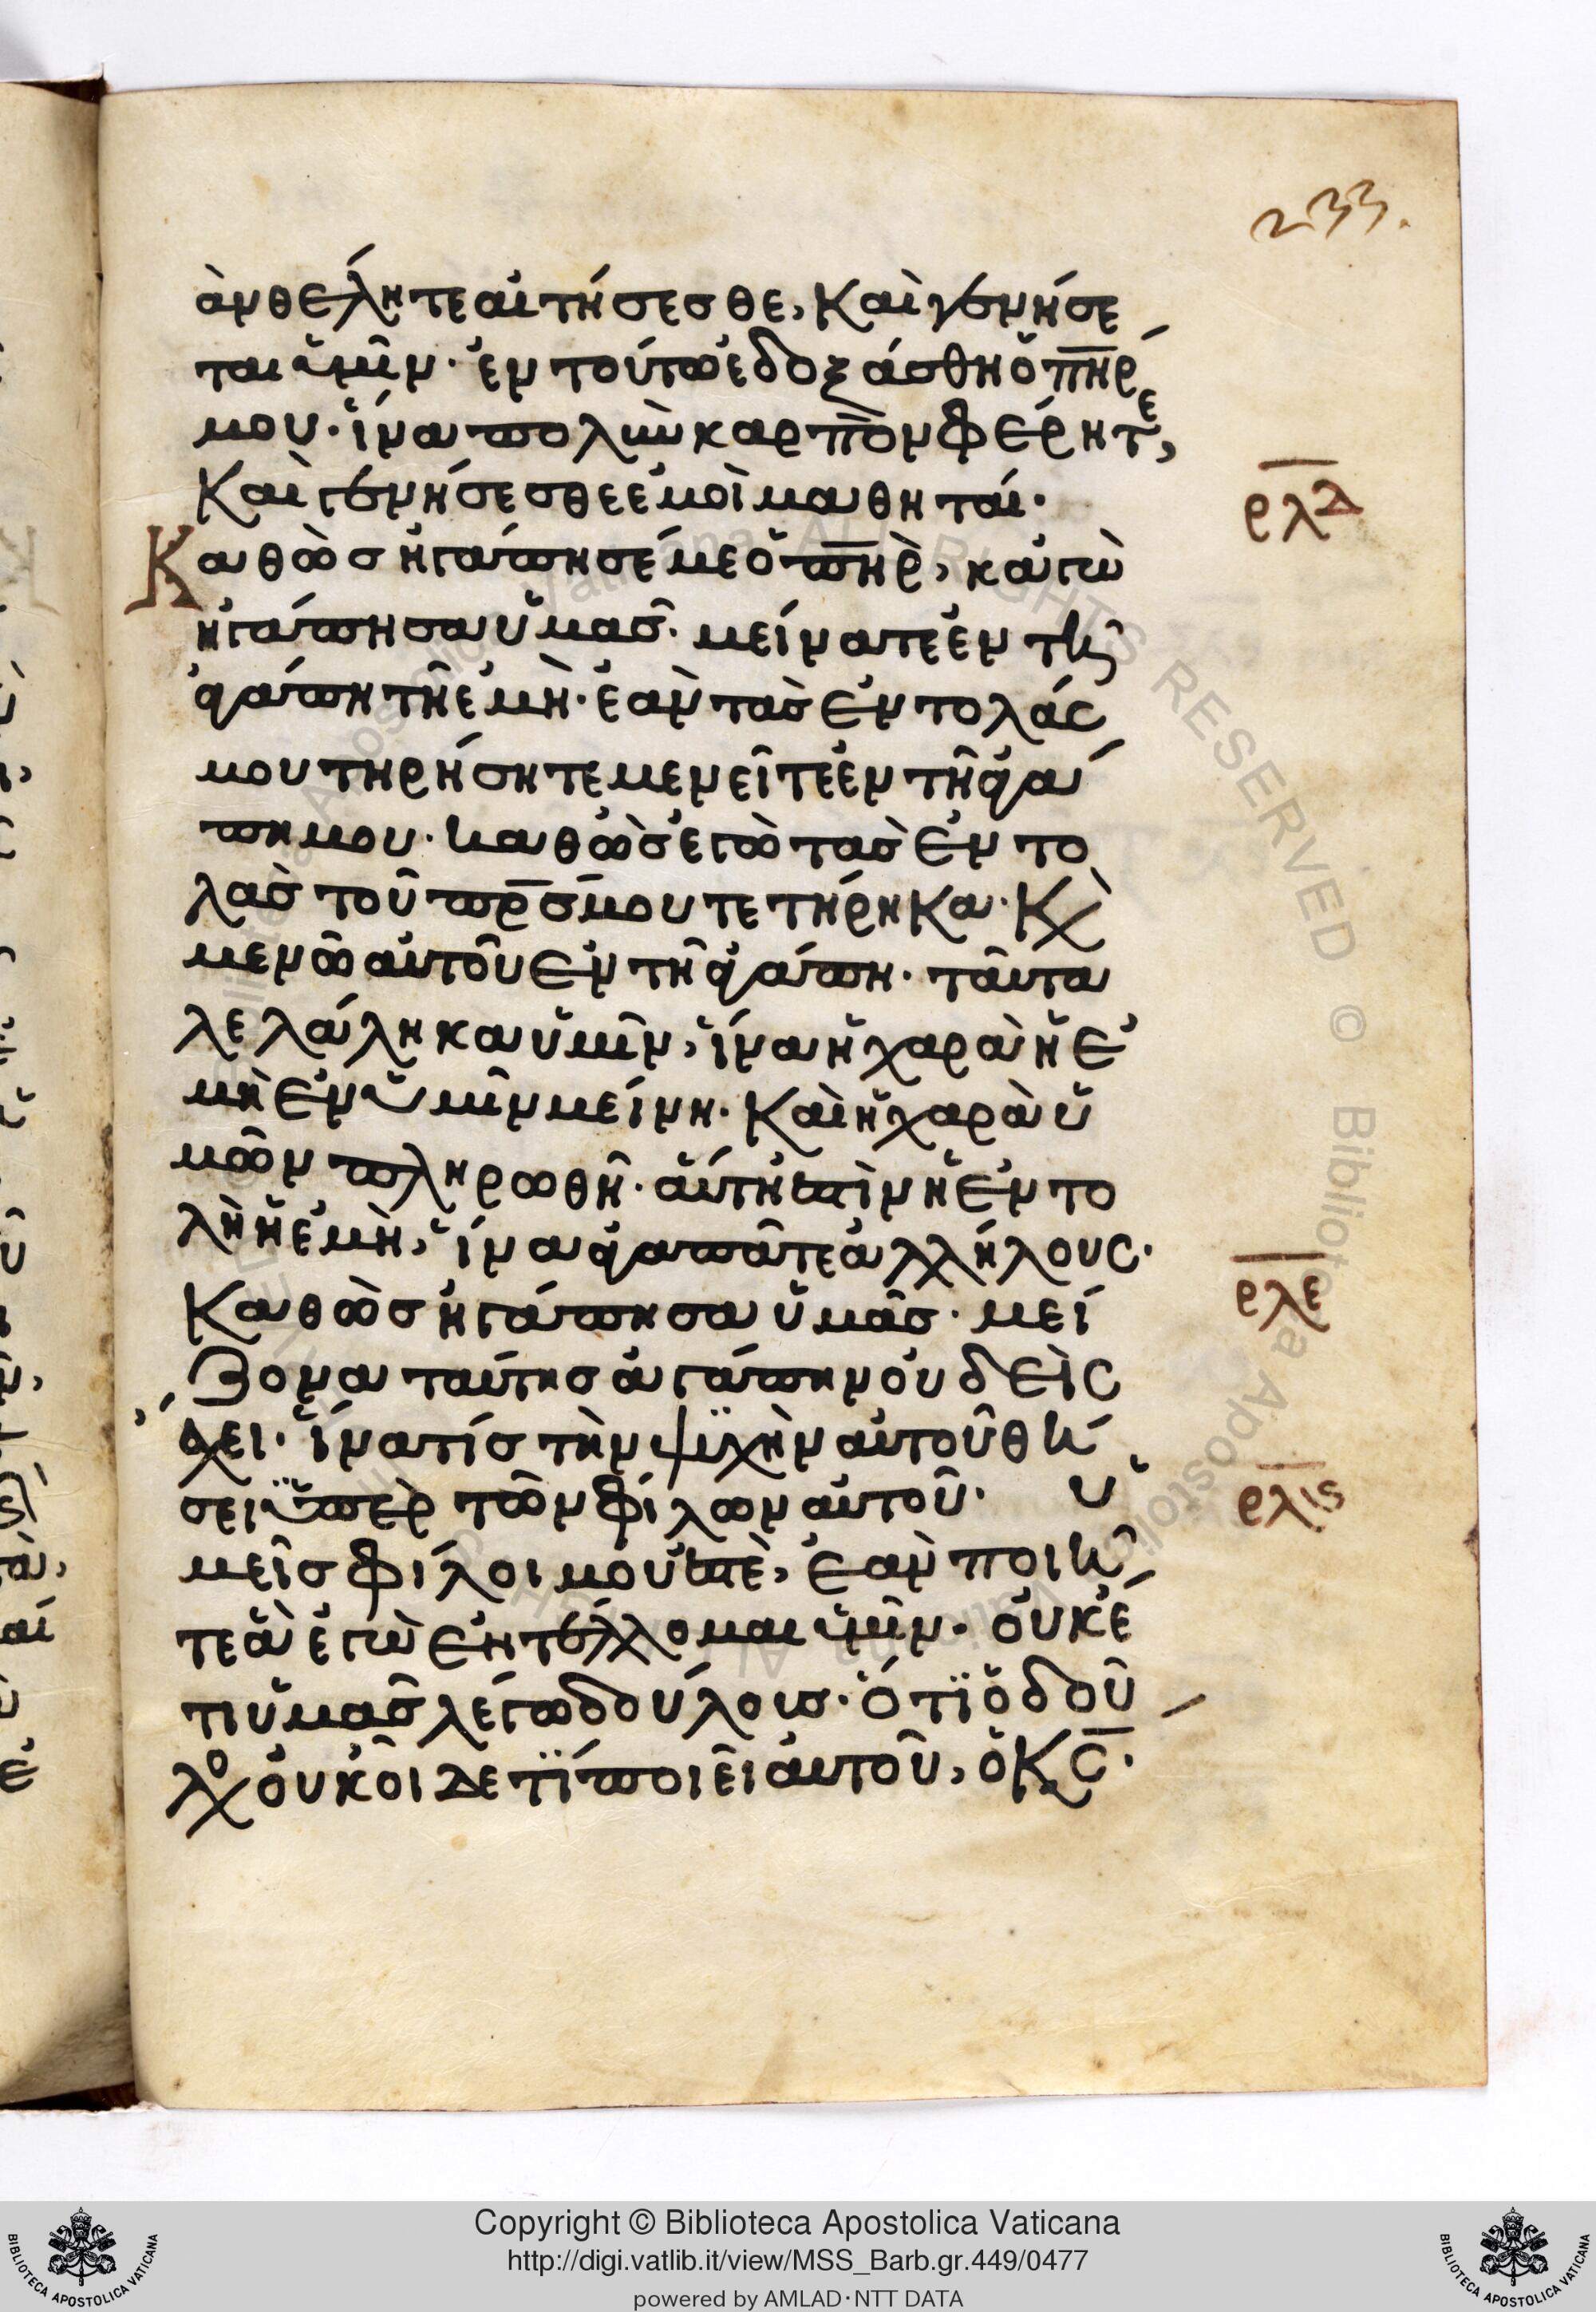 233.
ἂν θέλητε αἰτήσεσθε, καὶ γενήσε
ται ὑμῖν· ἐν τούτω ἐδοξάσθη ὁ πηρ
μου· ἵνα πολὺν καρπὸν φέρητε,
Καὶ γενήσεσθε ἐμοὶ μαθηταί·
ρλδ
Καθὼσ ἠγάπησέ με ὁ πηρ, κἀγὼ
ἠγάπησα ὑμᾶσ· μείνατε ἐν τῆ
ἀγάπη τῆ ἐμῆ· ἐὰν τὰσ ἐντολάς
μου τηρήσητε μενεῖτε ἐν τῆ ἀγά
πη μου· καθὼσ ἐγὼ τὰσ ἐντο
λὰσ τοῦ πρσ μου τετήρηκα· κ
μένω αὐτοῦ ἐν τῆ ἀγάπη· ταῦτα
λελάληκα ὑμῖν, ἵνα ἡ χαρὰ ἡ ἐ
μὴ ἐν ὑμῖν μείνη· Καὶ ἡ χαρὰ ὑ
μῶν πληρωθῆ· αὕτη ἐστὶν ἡ ἐντο
λὴ ἡ ἐμὴ, ἵνα ἀγαπᾶτε ἀλλήλους·
Καθὼσ ἠγάπησα ὑμᾶσ· μεί
ρλε
ζονα ταύτησ ἀγάπην οὐδεὶς
ἔχει· ἵνα τίσ τὴν ψϋχὴν αὐτοῦ θή
σει ὑπὲρ τῶν φίλων αὐτοῦ· ὑ
ρλς
μεῖσ φίλοι μού ἐστὲ, ἐὰν ποιῆ
τε ἃ ἐγὼ ἐντέλλομαι ὑμῖν· οὐκέ
τι ὑμᾶσ λέγω δούλουσ· ὅτϊ ὁ δοῦ
λο οὐκ οἶδε τϊ ποιεῖ αὐτοῦ, ὁ κς·
Copyright © Biblioteca Apostolica Vaticana
http://digi.vatlib.it/view/MSS_Barb.gr.449/0477
powered by AMLAD·NTT DATA
BIBLIOTECA APOSTOLICA VATICANA
BIBLIOTECA APOSTOLICA VATICANA